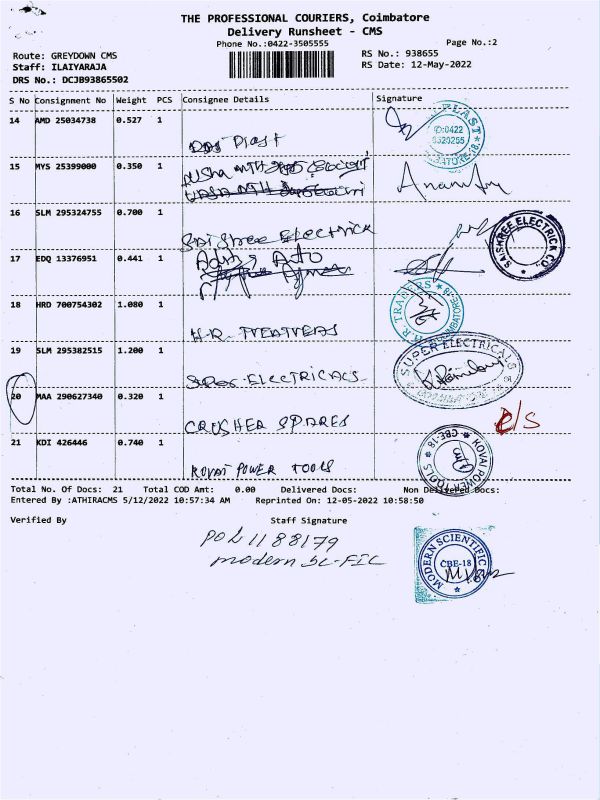 THE PROFESSIONAL COURIERS, Coimbatore
Delivery Runsheet - CMS
Phone No.:0422-3505555
Page No.:2
Route: GREYDOWN CMS
RS No.: 938655
Staff: ILAIYARAJA
RS Date: 12-May-2022
DRS No.: DCJB93865502
S No Consignment No Weight PCS Consignee Details Signature
14 AMD 25034738 0.527 1
Plast
15 MYS 25399000 0.350 1
16 SLM 295324755 0.700 1
Sai Shree Electrick
SAISHREE ELECTRICK CO.
17 EDQ 13376951 0.441 1
18 HRD 700754302 1.080 1
H.R.
H.R. TRADERS
19 SLM 295382515 1.200 1
SUPER ELECTRICALS
SUPER ELECTRICALS
20 MAA 290627340 0.320 1
CRUSHER SPARES
21 KDI 426446 0.740 1
KOVAI POWER TOOLS
KOVAI POWER TOOLS CBE-18
Total No. Of Docs: 21 Total COD Amt: 0.00 Delivered Docs: Non Delivered Docs:
Entered By :ATHIRACMS 5/12/2022 10:57:34 AM Reprinted On: 12-05-2022 10:58:50
Verified By Staff Signature
POL 1188179
modern
MODERN SCIENTIFIC
CBE-18